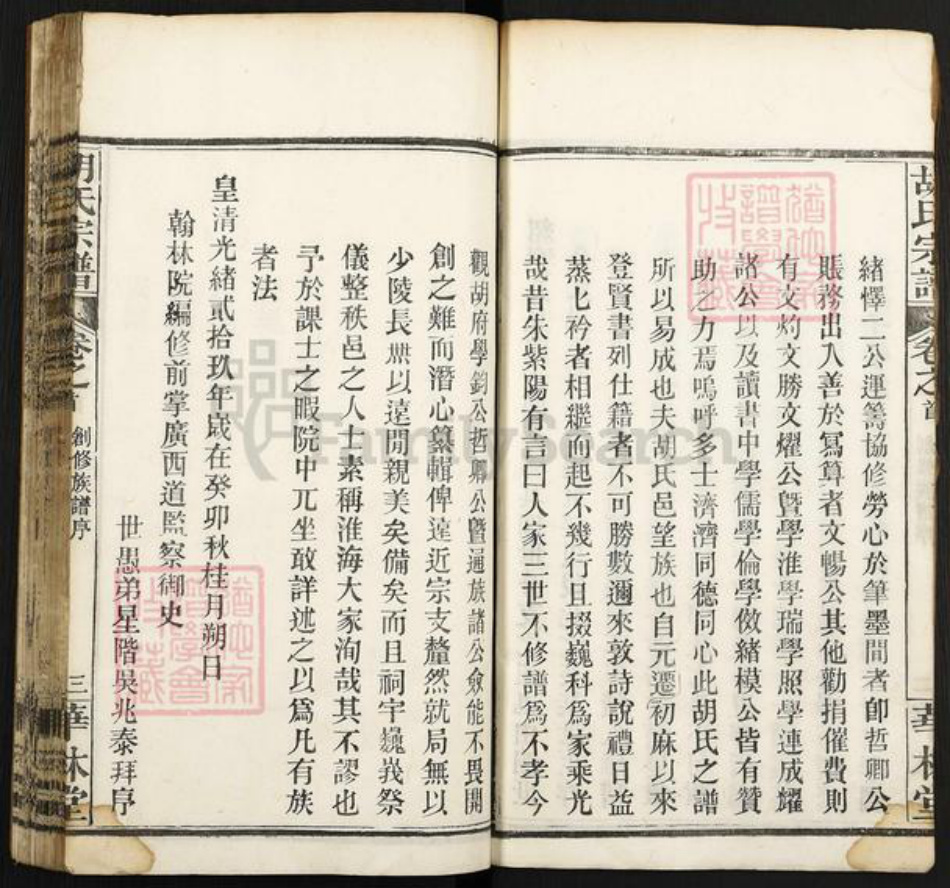 胡氏宗譜 卷之首
緒懌二公運籌協修勞心於筆墨間者卽哲卿公
賬務出入善於寫算者文暢公其他勸捐催費則
有文灼文勝文燿公暨學淮學瑞學照學連成耀
諸公以及讀書中學儒學倫學儆緒模公皆有贊
助之力焉嗚呼多士濟濟同德同心此胡氏之譜
所以易成也夫胡氏邑望族也自元遷初麻以來
登賢書列仕籍者不可勝數邇來敦詩說禮日益
蒸匕衿者相繼而起不幾行且掇巍科爲家乘光
哉昔朱紫陽有言曰人家三世不修譜爲不孝今
華林堂
觀胡府學鈞公哲卿公暨遍族諸公僉能不畏開
創之難而潛心纂輯俾遠近宗支釐然就局無以
少陵長無以遠間親美矣備矣而且祠宇巍峩祭
儀整秩邑之人士素稱淮海大家洵哉其不謬也
予於課士之暇院中兀坐敢詳述之以爲凡有族
者法
皇清光緒貳拾玖年歲在癸卯秋桂月朔日
翰林院編修前掌廣西道監察御史
世愚弟星階吳兆泰拜序
胡氏宗譜 卷之首 創修族譜序 三 華林堂
FamilySearch